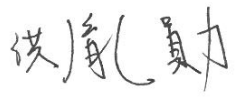 洪胤勛